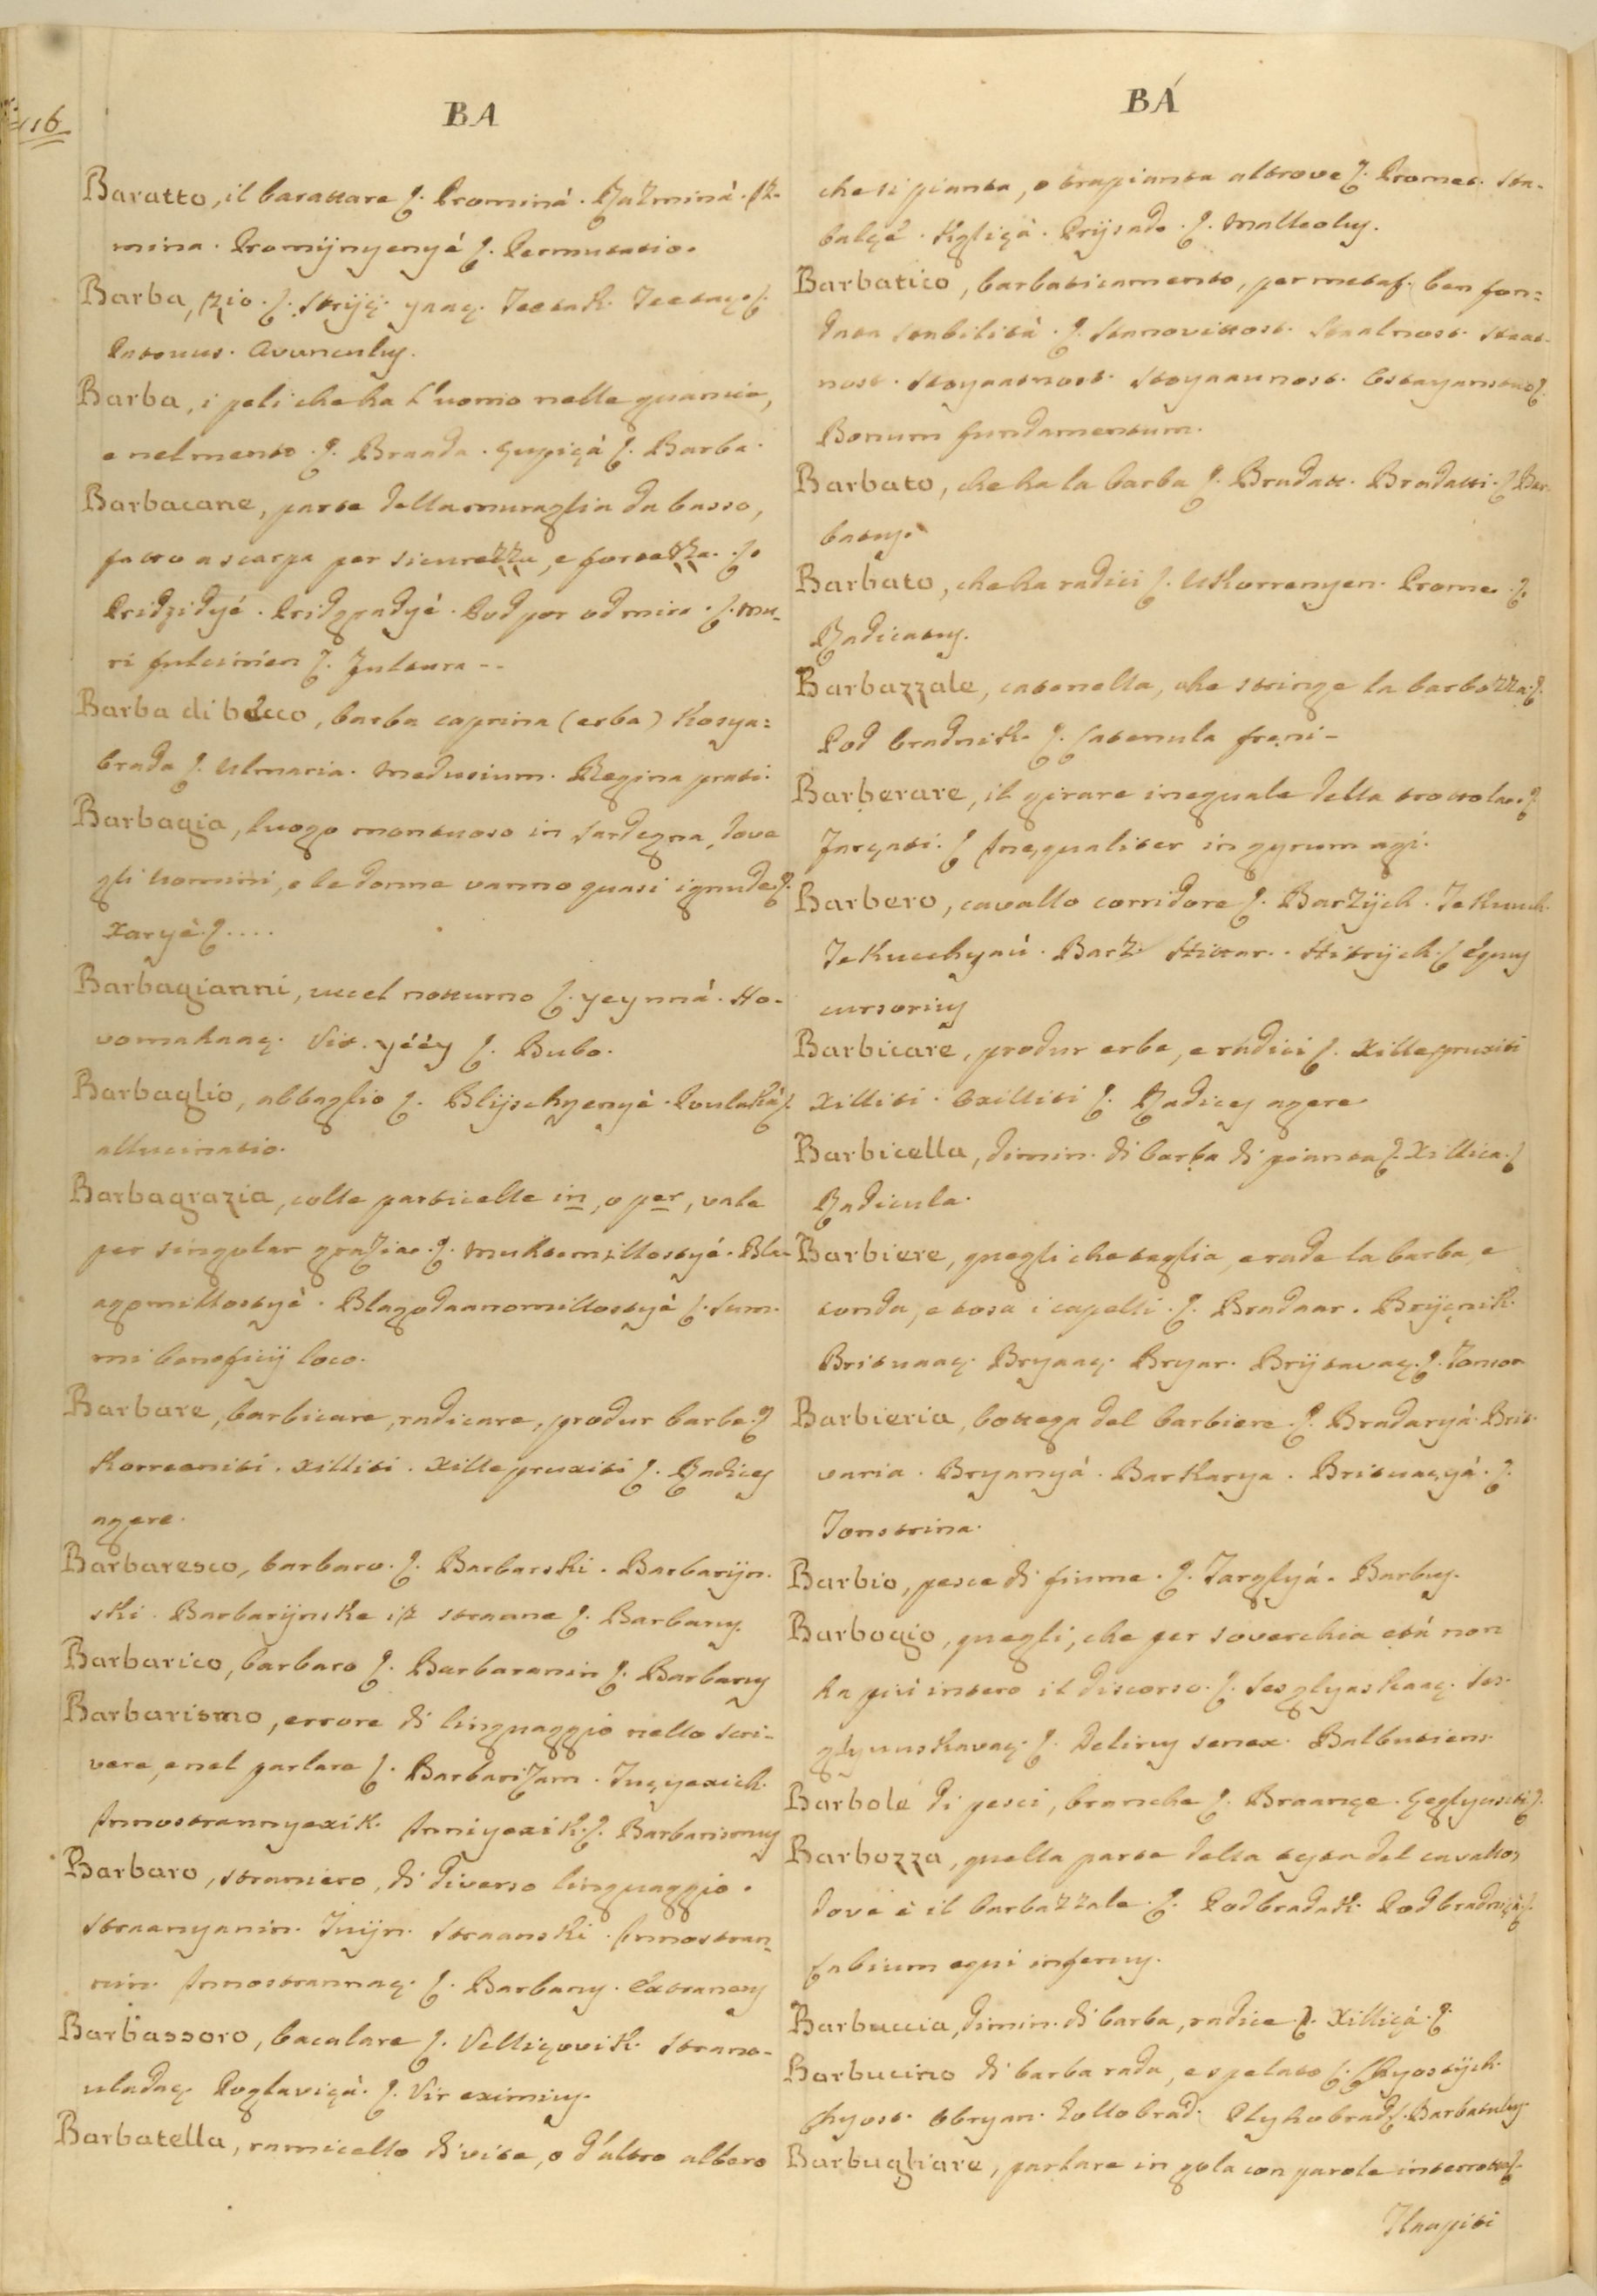 116
BA
Baratto, il barattare ſ. Prominá. Razminá. Iz-
mina. Promijnyenyé ſ. Permutatio.
Barba, zio. ſ. Strijç. yaaç. Teetak. Teetaç. ſ.
Patruus. Avunculuy.
Barba, i peli che ha l'uomo nelle guancie,
e nel mento. ſ. Braada. çupiçá ſ. Barba.
Barbacane, parte della muraglia da basso,
fatto a scarpa per sicurezza, e fortezza. ſ.
Pridzidyé. Pridgradyé. Podpor od mira. ſ. Mu-
ri ſ. Fultura --
Barba di becco, barba caprina (erba) Kosya=
brada ſ. Ulmaria. Medusium. Regina prati.
Barbagia, luogo montuoso in Sardegna, dove
gli uomini, e le donne vanno quasi ignude. ſ.
Xaryé. ſ....
Barbagianni, uccel notturno ſ. yeynná. No-
vomakaaç. Vit. yééy ſ. Bubo.
Barbaglio, abbaglio ſ. Blijschyenyé. ſ.
allucinatio.
Barbagrazia, colle particelle in, o per, vale
per singolar grazia. ſ. Muktemillostyé. Bla-
agomillostyé. Blagodaanomillostyé ſ. Sum-
mi beneficij loco.
Barbare, barbicare, radicare, produr barbe. ſ
Korreeniti. Xilliti. Xillepruxiti ſ. Radicey
agere.
Barbaresco, barbaro. ſ. Barbarski. Barbarijn-
ski. Barbarijnske iz straane ſ. Barbaruy.
Barbarico, barbaro ſ. Barbaranin ſ. Barbaruy
Barbarismo, errore di linguaggio nello scri-
vere, e nel parlare ſ. Barbarizam. Tuçyexich.
Innostrannyexik. Inniyexik. ſ. Barbarismuy
Barbaro, straniero, di diverso linguaggio.
Straanyanin. Tuijn. Straanski. Innostran-
nin. Innostrannaç. ſ. Barbaruy. Extraneuy
Barbassoro, bacalare ſ. Velliçovik. Strano-
uladaç. Poglaviçá. ſ. Vir eximiuy.
Barbatella, ramicello di vite, o d'altro albero
BÁ
che si pianta, o trapianta altrove ſ. Promet. Sta-
balçé. Kgliçá. Prijsad. ſ. Malleoluy.
Barbatico, barbaticamento, per metaf. ben fon=
data stabilità. ſ. Stanovittost. Staalnost. Staat-
nost. Stoyaatnost. Stoyaaunost. Ostayanstuo ſ.
Bonum fundamentum.
Barbato, che ha la barba ſ. Bradatt. Bradatti. ſ Bar-
batuy.
Barbato, che ha radici ſ. Ukorrenyen. Promet. ſ.
Radicatuy.
Barbazzale, catenella, che stringe la barbozza. ſ.
Podbradnik ſ. Catenula freni-
Barberare, il girare ineguale della trottola. ſ
Farçati. ſ Inequaliter in gyrum agi.
Barbero, cavallo corridore ſ. Barzijch. Tekuuch.
Tekucchyaú. Barz. Hittar. Hitrijch. ſ equuy
cursoriuy
Barbicare, produr erbe, e radici ſ. Xillepruxiti
Xilliti. Oxilliti ſ. Radicey agere
Barbicella, dimin. di barba di pianta ſ. Xillica. ſ
Radicula.
Barbiere, quegli che taglia, e rade la barba, e
tonda, e tosa i capelli. ſ. Bradaar. Brijçnik.
Brituaaç. Bryaaç. Bryar. Brijtavaç. ſ. Tonsor
Barbieria, bottega del barbiere. ſ. Bradaryá. Brit-
varia. Bryaryá. Barkarya. Brituaçyá. ſ.
Tonstrina.
Barbio, pesce di fiume. ſ. Targlyá. Barbuy.
Barbogio, quegli, che per soverchia età non
ha più intero il discorso. ſ. Seoglyaskaaç. Ses-
glyuuskavaç. ſ. Deliruy senex. Balbutiens.
Barbole di pesci, branche ſ. Braançe. çeglyusti ſ.
Barbozza, quella parte della testa del cavallo,
dove è il barbazzale. ſ. Podbradak. Podbradniçá ſ.
Labium equi inferuy.
Barbuccia, dimin. di barba, radice ſ. Xilliçá. ſ.
Barbucino di barba rada, e spelato ſ. Chyostijch.
Chyost. Obryan. Gollobrad. Plyhobrad ſ. Barbatuluy
Barbugliare, parlare in gola con parole interrotte ſ.
Tlaapiti